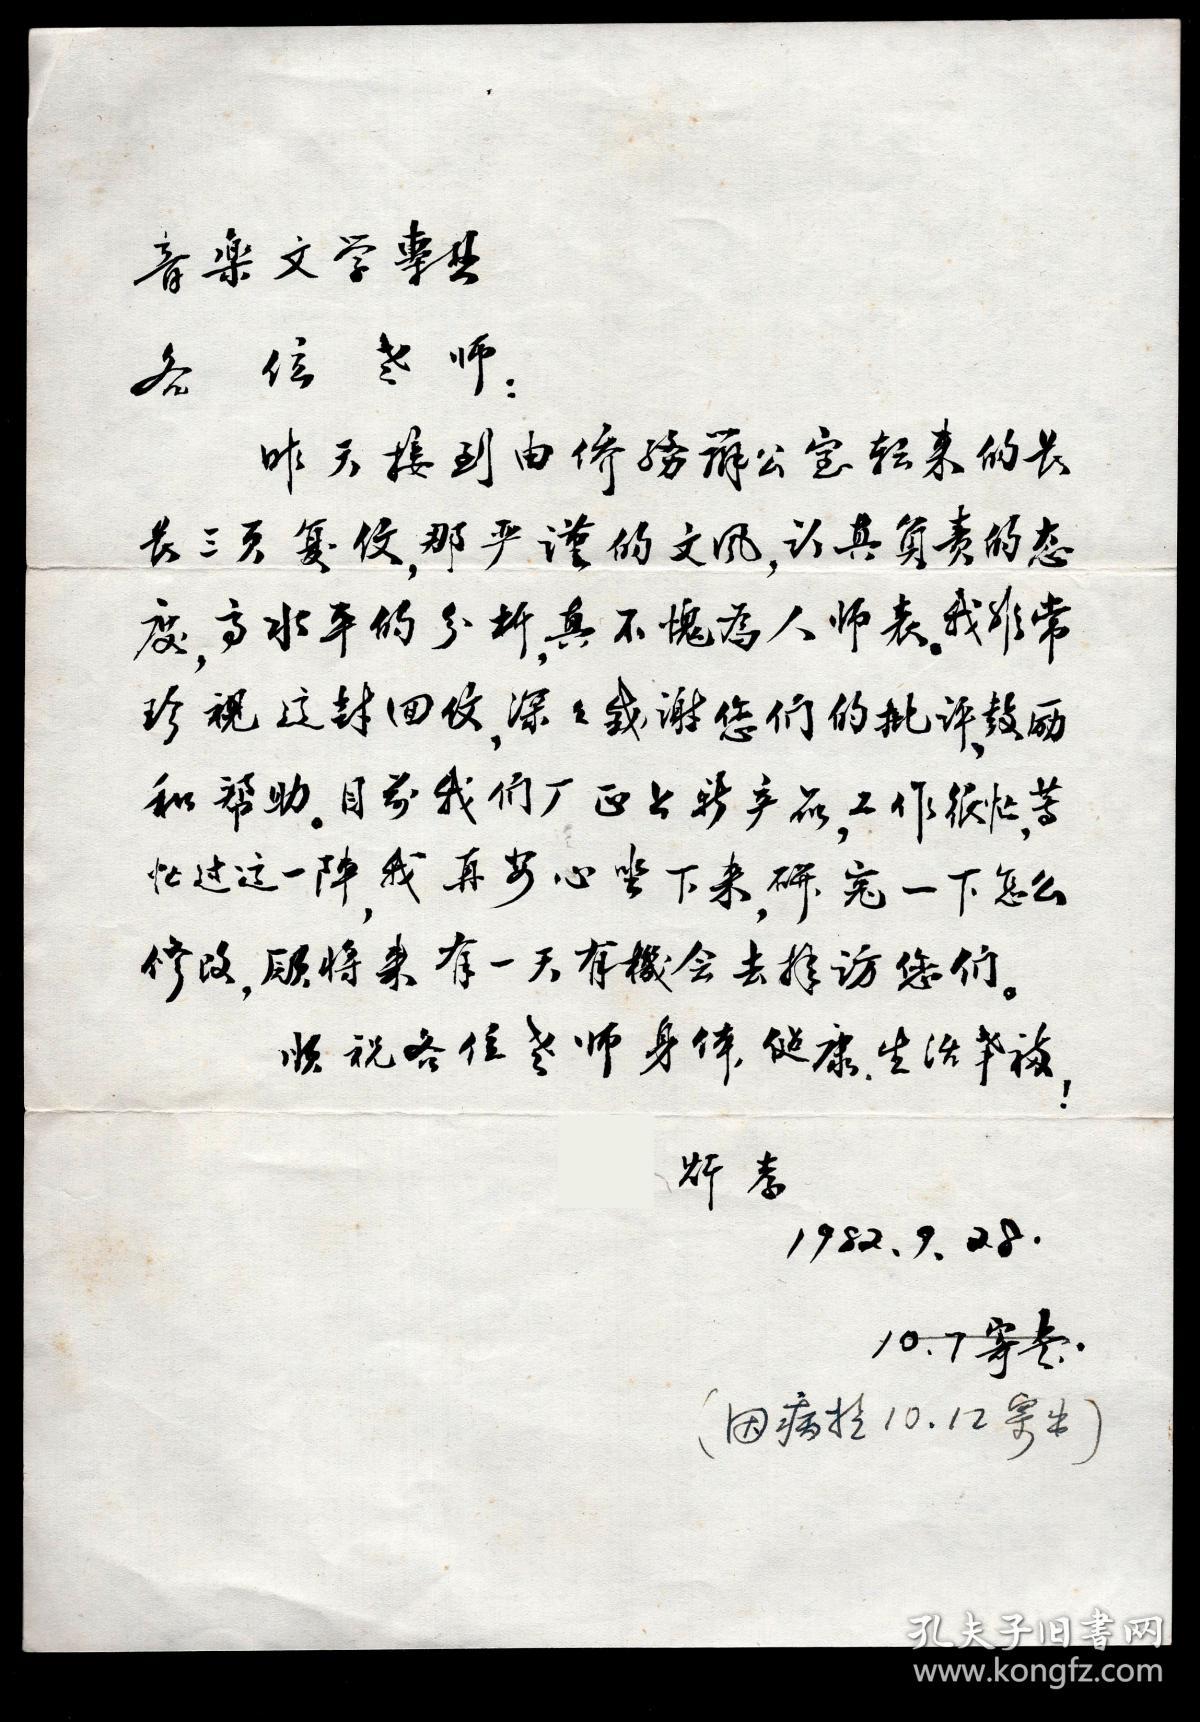 音楽文学專班
各位老师：
昨天接到由侨务办公室转来的长
长三页复信，那严谨的文风，认真负责的态
度，高水平的分析，真不愧為人师表。我非常
珍视这封回信，深々感谢您们的批评、鼓励
和帮助。目前我们厂正上新产品，工作很忙，等
忙过这一阵，我再安心坐下来，研究一下怎么
修改，愿将来有一天有機会去拜访您们。
顺祝各位老师身体健康、生活幸福！
1982.9.28.
10.7寄出.
（因病於10.12寄出）
孔夫子旧書网
www.kongfz.com